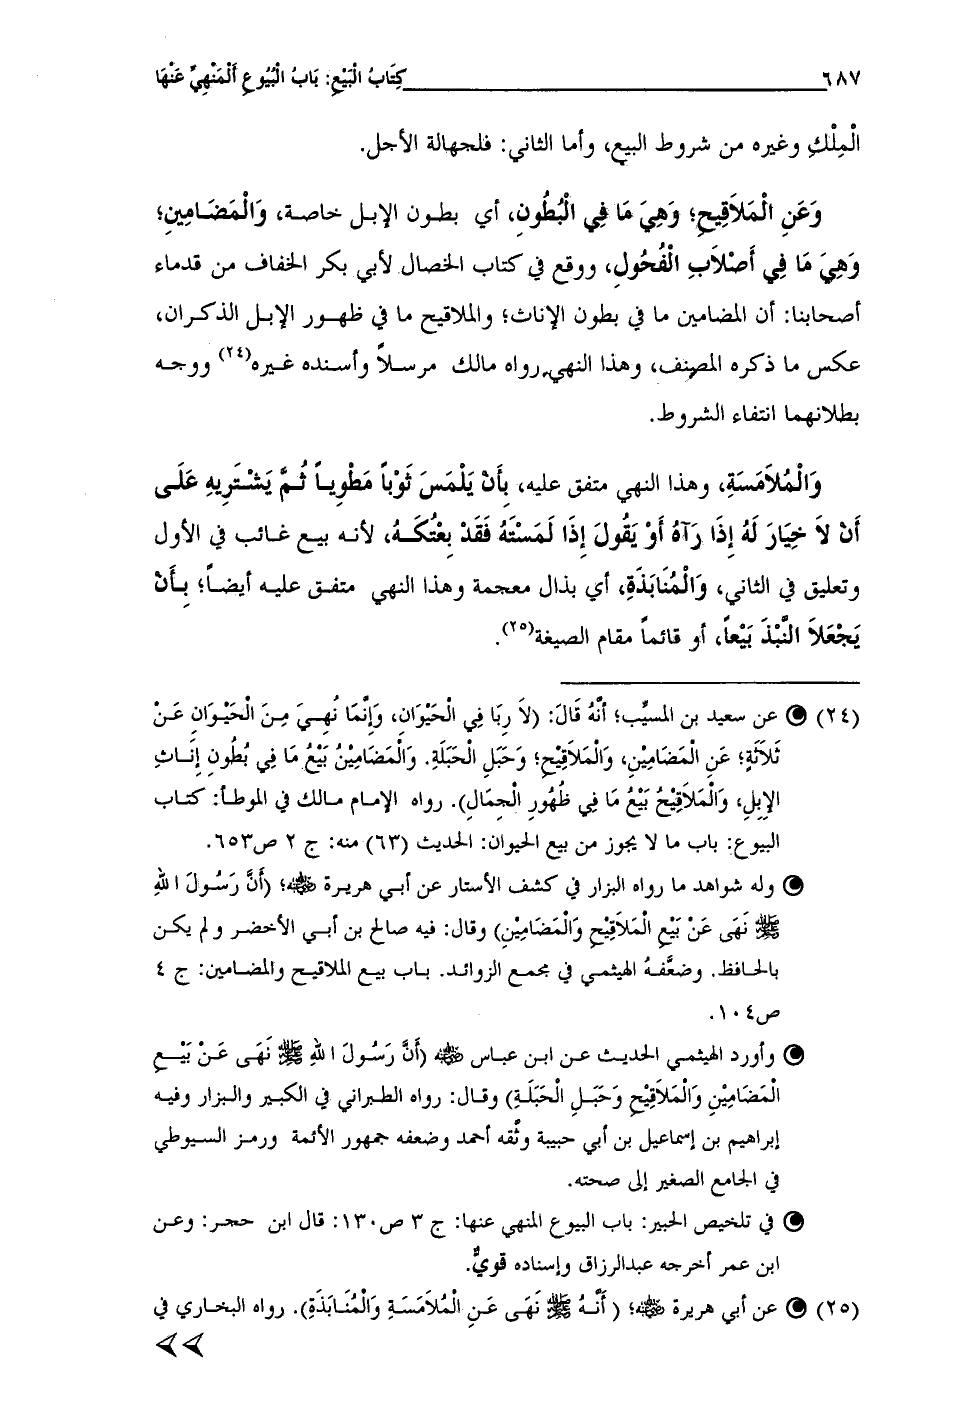 ٦٨٧ كِتَابُ الْبَيْعِ: بَابُ الْبُيُوعِ اَلْمَنْهِيِّ عَنْهَا
الْمِلْكِ وغيره من شروط البيع، وأما الثاني: فلجهالة الأجل.
وَعَنِ الْمَلاَقِيحِ؛ وَهِيَ مَا فِي الْبُطُونِ، أي بطون الإبل خاصة، وَالْمَضَامِينِ؛
وَهِيَ مَا فِي أَصْلاَبِ الْفُحُولِ، ووقع في كتاب الخصال لأبي بكر الخفاف من قدماء
أصحابنا: أن المضامين ما في بطون الإناث؛ والملاقيح ما في ظهور الإبل الذكران،
عكس ما ذكره المصنف، وهذا النهي رواه مالك مرسلاً وأسنده غيره(٢٤) ووجه
بطلانهما انتفاء الشروط.
وَالْمُلاَمَسَةِ، وهذا النهي متفق عليه، بِأَنْ يَلْمَسَ ثَوْباً مَطْوِياً ثُمَّ يَشْتَرِيهِ عَلَى
أَنْ لاَ خِيَارَ لَهُ إِذَا رَآهُ أَوْ يَقُولَ إِذَا لَمَسْتَهُ فَقَدْ بِعْتُكَهُ، لأنه بيع غائب في الأول
وتعليق في الثاني، وَالْمُنَابَذَةِ، أي بذال معجمة وهذا النهي متفق عليه أيضاً؛ بِأَنْ
يَجْعَلاَ النَّبْذَ بَيْعاً، أو قائماً مقام الصيغة(٢٥).
(٢٤) عن سعيد بن المسيِّب؛ أَنَّهُ قَالَ: (لاَ رِبَا فِي الْحَيْوَانِ، وَإِنَّمَا نُهِيَ مِنَ الْحَيْوَانِ عَنْ
ثَلاَثَةٍ؛ عَنِ الْمَضَامِيْنِ، وَالْمَلاَقِيْحِ؛ وَحَبَلِ الْحَبَلَةِ. وَالْمَضَامِيْنُ بَيْعُ مَا فِي بُطُونِ إِنَاثِ
الإِبِلِ، وَالْمَلاَقِيْحُ بَيْعُ مَا فِي ظُهُورِ الْجِمَالِ). رواه الإمام مالك في الموطأ: كتاب
البيوع: باب ما لا يجوز من بيع الحيوان: الحديث (٦٣) منه: ج ٢ ص٦٥٣.
وله شواهد ما رواه البزار في كشف الأستار عن أبي هريرة ﷺ؛ (أَنَّ رَسُولَ اللهِ
ﷺ نَهَى عَنْ بَيْعِ الْمَلاَقِيْحِ وَالْمَضَامِيْنِ) وقال: فيه صالح بن أبي الأخضر ولم يكن
بالحافظ. وضعَّفهُ الهيثمي في مجمع الزوائد. باب بيع الملاقيح والمضامين: ج ٤
ص١٠٤.
وأورد الهيثمي الحديث عن ابن عباس ﷺ (أَنَّ رَسُولَ اللهِ ﷺ نَهَى عَنْ بَيْعِ
الْمَضَامِيْنِ وَالْمَلاَقِيْحِ وَحَبَلِ الْحَبَلَةِ) وقال: رواه الطبراني في الكبير والبزار وفيه
إبراهيم بن إسماعيل بن أبي حبيبة وثَّقه أحمد وضعفه جمهور الأئمة ورمز السيوطي
في الجامع الصغير إلى صحته.
في تلخيص الحبير: باب البيوع المنهي عنها: ج ٣ ص١٣٠: قال ابن حجر: وعن
ابن عمر أخرجه عبدالرزاق وإسناده قويٌّ.
(٢٥) عن أبي هريرة ﷺ؛ (أَنَّهُ ﷺ نَهَى عَنِ الْمُلاَمَسَةِ وَالْمُنَابَذَةِ). رواه البخاري في